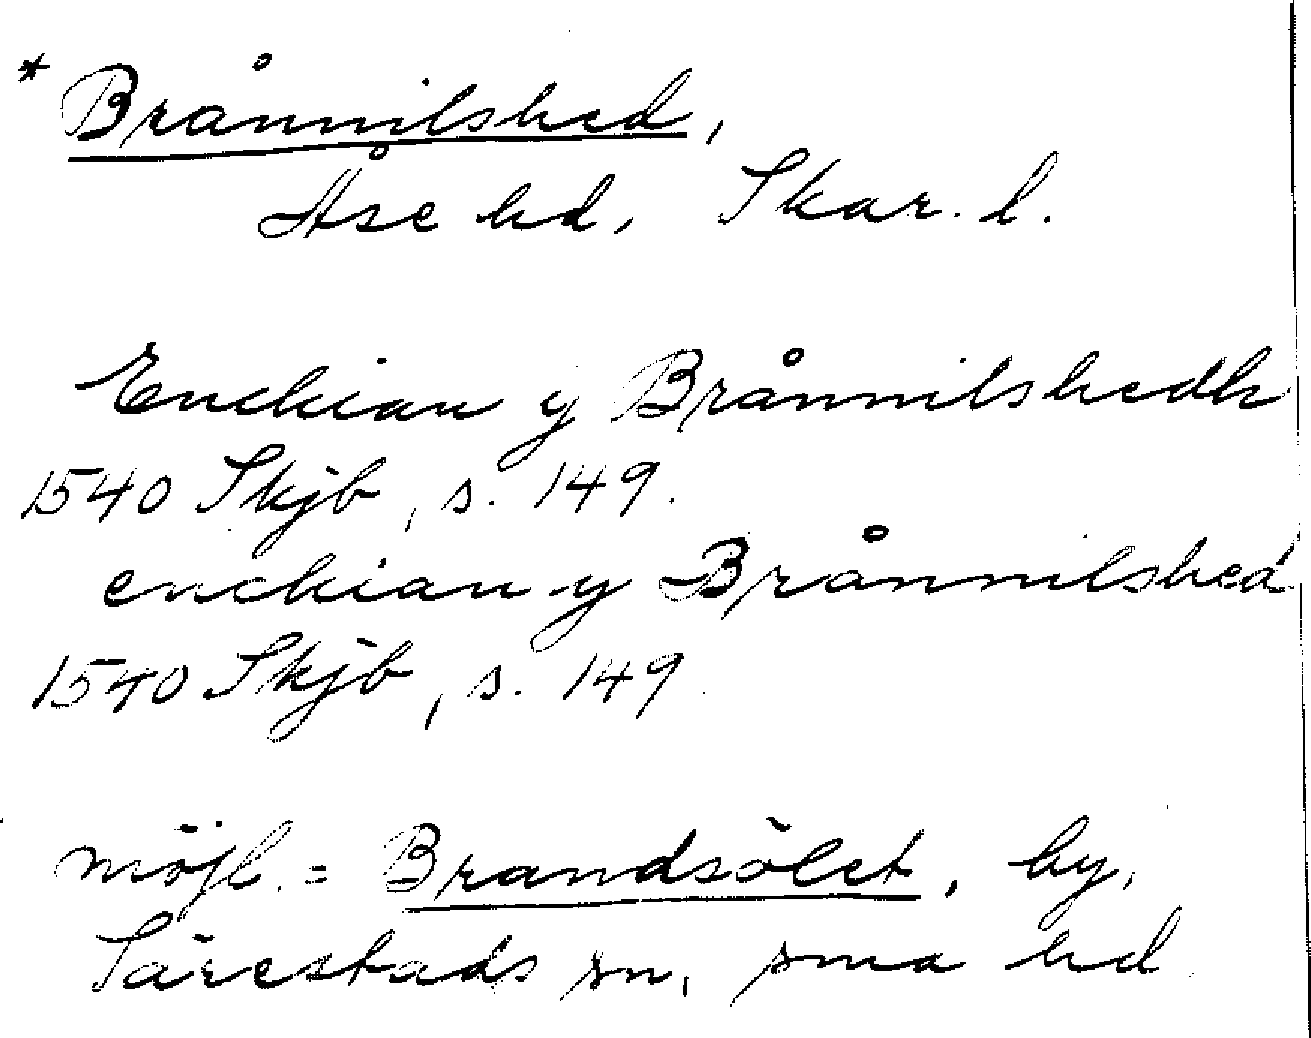 * Brånnilshed,
Åse hd, Skar. l.
Enckian y Brånnilshedh
1540 Skjb, s. 149.
enckian y Brånnilshed
1540 Skjb, s. 149.
möjl. = Brandsölet, by,
Särestads sn, sma hd